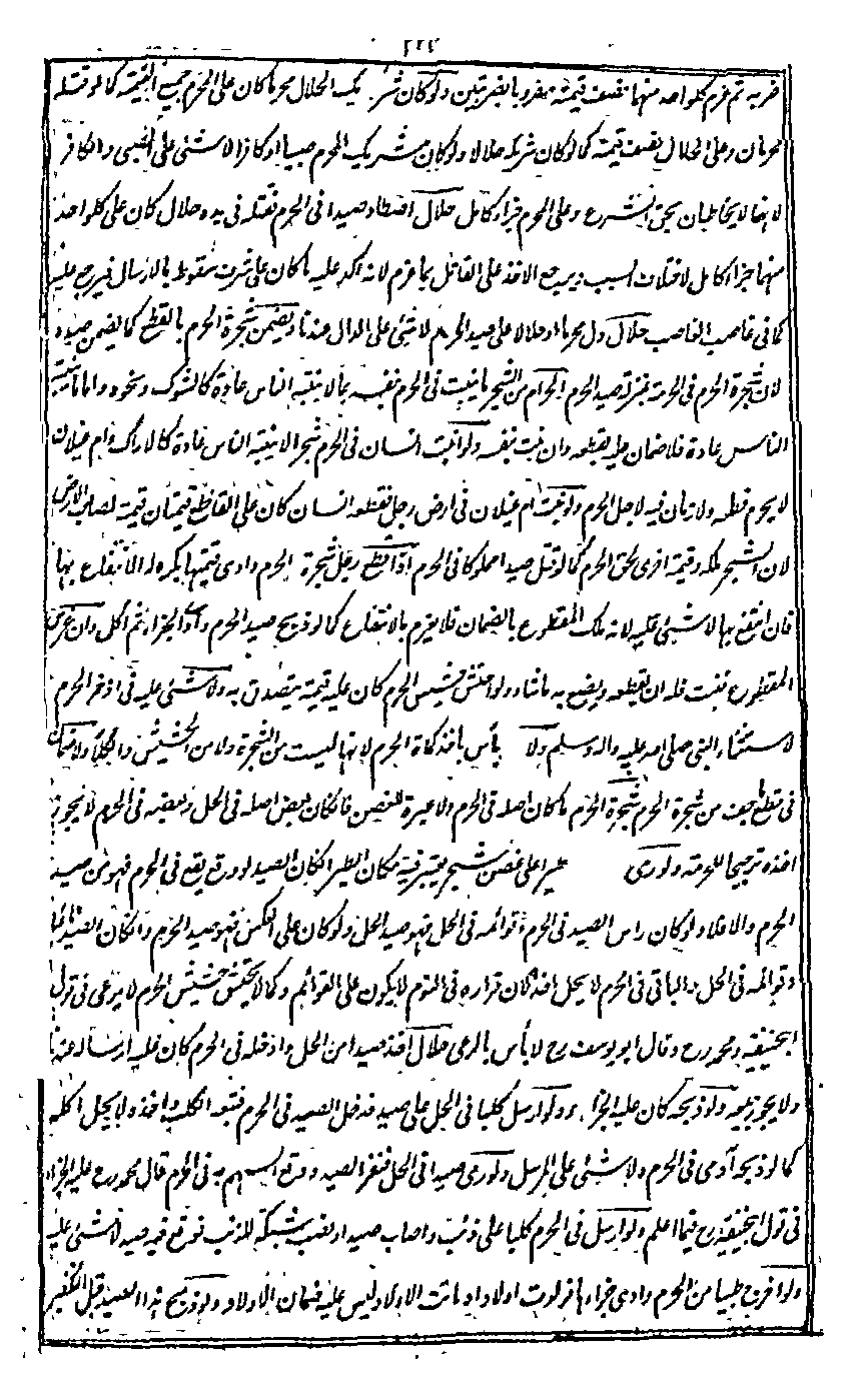 ٢٢٢
ضربه ثم غرم كل واحد منهما نصف قيمته مضروبا بالضربتين ولو كان شريك الحلال محرما كان على المحرم جميع القيمة كما لو قتله
المحرمان وعلى الحلال نصف قيمته كما لو كان شريكه حلالا ولو كان شريك المحرم صبيا او كافرا لا شئ على الصبى والكافر
لانهما لا يخاطبان بحق الشرع وعلى المحرم جزاء كامل حلال اصطاد صيدا فى الحرم فقتله فى يده حلال كان على كل واحد
منهما جزاء كامل لاختلاف السبب ويرجع الاخذ على القاتل بما غرم لانه اكد عليه ما كان على شرف السقوط بالارسال فيرجع عليه
كما فى غاصب الغاصب حلال دل محرما او حلالا على صيد الحرم لا شئ على الدال عندنا ويضمن شجرة الحرم بالقطع كما يضمن صيده
لان شجرة الحرم فى الحرمة بمنزلة صيد الحرم الحرام من الشجر ما ينبت فى الحرم بنفسه مما لا ينبته الناس عادة كالشوك ونحوه واما ما ينبته
الناس عادة فلا ضمان عليه بقطعه وان نبت بنفسه ولو انبت انسان فى الحرم شجرا لا ينبته الناس عادة كالاراك وام غيلان
لا يحرم قطعه ولا ضمان فيه لاجل الحرم ولو نبت ام غيلان فى ارض رجل فقطعه انسان كان على القاطع قيمتان قيمة لصاحب الارض
لان الشجر ملكه وقيمة اخرى لحق الحرم كما لو قتل صيدا مملوكا فى الحرم اذا قطع رجل شجرة الحرم وادى قيمتها يكره له الانتفاع بها
فان انتفع بها لا شئ عليه لانه ملك المقطوع بالضمان فلا يغرم بالانتفاع كما لو ذبح صيد الحرم وادى الجزاء ثم اكل وان غرس
المقطوع فنبت فله ان يقطعه ويصنع به ما شاء ولو احتش حشيش الحرم كان عليه قيمته يتصدق به ولا شئ عليه فى اذخر الحرم
لاستثناء النبى صلى الله عليه واله وسلم ولا بأس باخذ كماة الحرم لانها ليست من الشجرة ولا من الحشيش والكلأ ولا ضمان
فى قطع ما جف من شجرة الحرم شجرة الحرم ما كان اصله فى الحرم ولا عبرة للغصن فان كان بعض اصله فى الحل وبعضه فى الحرم لا يجوز
اخذه ترجيحا للحرمة ولو رمى طيرا على غصن شجر يعتبر فيه مكان الطير ان كان الصيد لو وقع يقع فى الحرم فهو من صيد
الحرم والا فلا ولو كان راس الصيد فى الحرم وقوائمه فى الحل فهو صيد الحل ولو كان على العكس فهو صيد الحرم وان كان الصيد نائما
وقوائمه فى الحل والباقى فى الحرم لا يحل اخذه لان قراره فى النوم لا يكون على القوائم وكما لا يحتش حشيش الحرم لا يرعى فى قول
ابى حنيفة ومحمد رح وقال ابو يوسف رح لا بأس بالرعى حلال اخذ صيدا من الحل وادخله فى الحرم كان عليه ارساله عندنا
ولا يجوز بيعه ولو ذبحه كان عليه الجزاء ولو ارسل كلبا فى الحل على صيد فدخل الصيد فى الحرم فتبعه الكلب واخذه لا يحل اكله
كما لو ذبحه آدمى فى الحرم ولا شئ على المرسل ولو رمى صيدا فى الحل فنفر الصيد ووقع السهم به فى الحرم قال محمد رح عليه الجزاء
فى قول ابى حنيفة رح فيما اعلم ولو ارسل فى الحرم كلبا على ذئب واصاب صيدا او نصب شبكة للذئب فوقع فيه صيد لا شئ عليه
ولو اخرج ظبيا من الحرم وادى جزاءها فولدت اولادا وماتت الاولاد ليس عليه ضمان الاولاد ولو ذبح هذا الصيد قبل التكفير